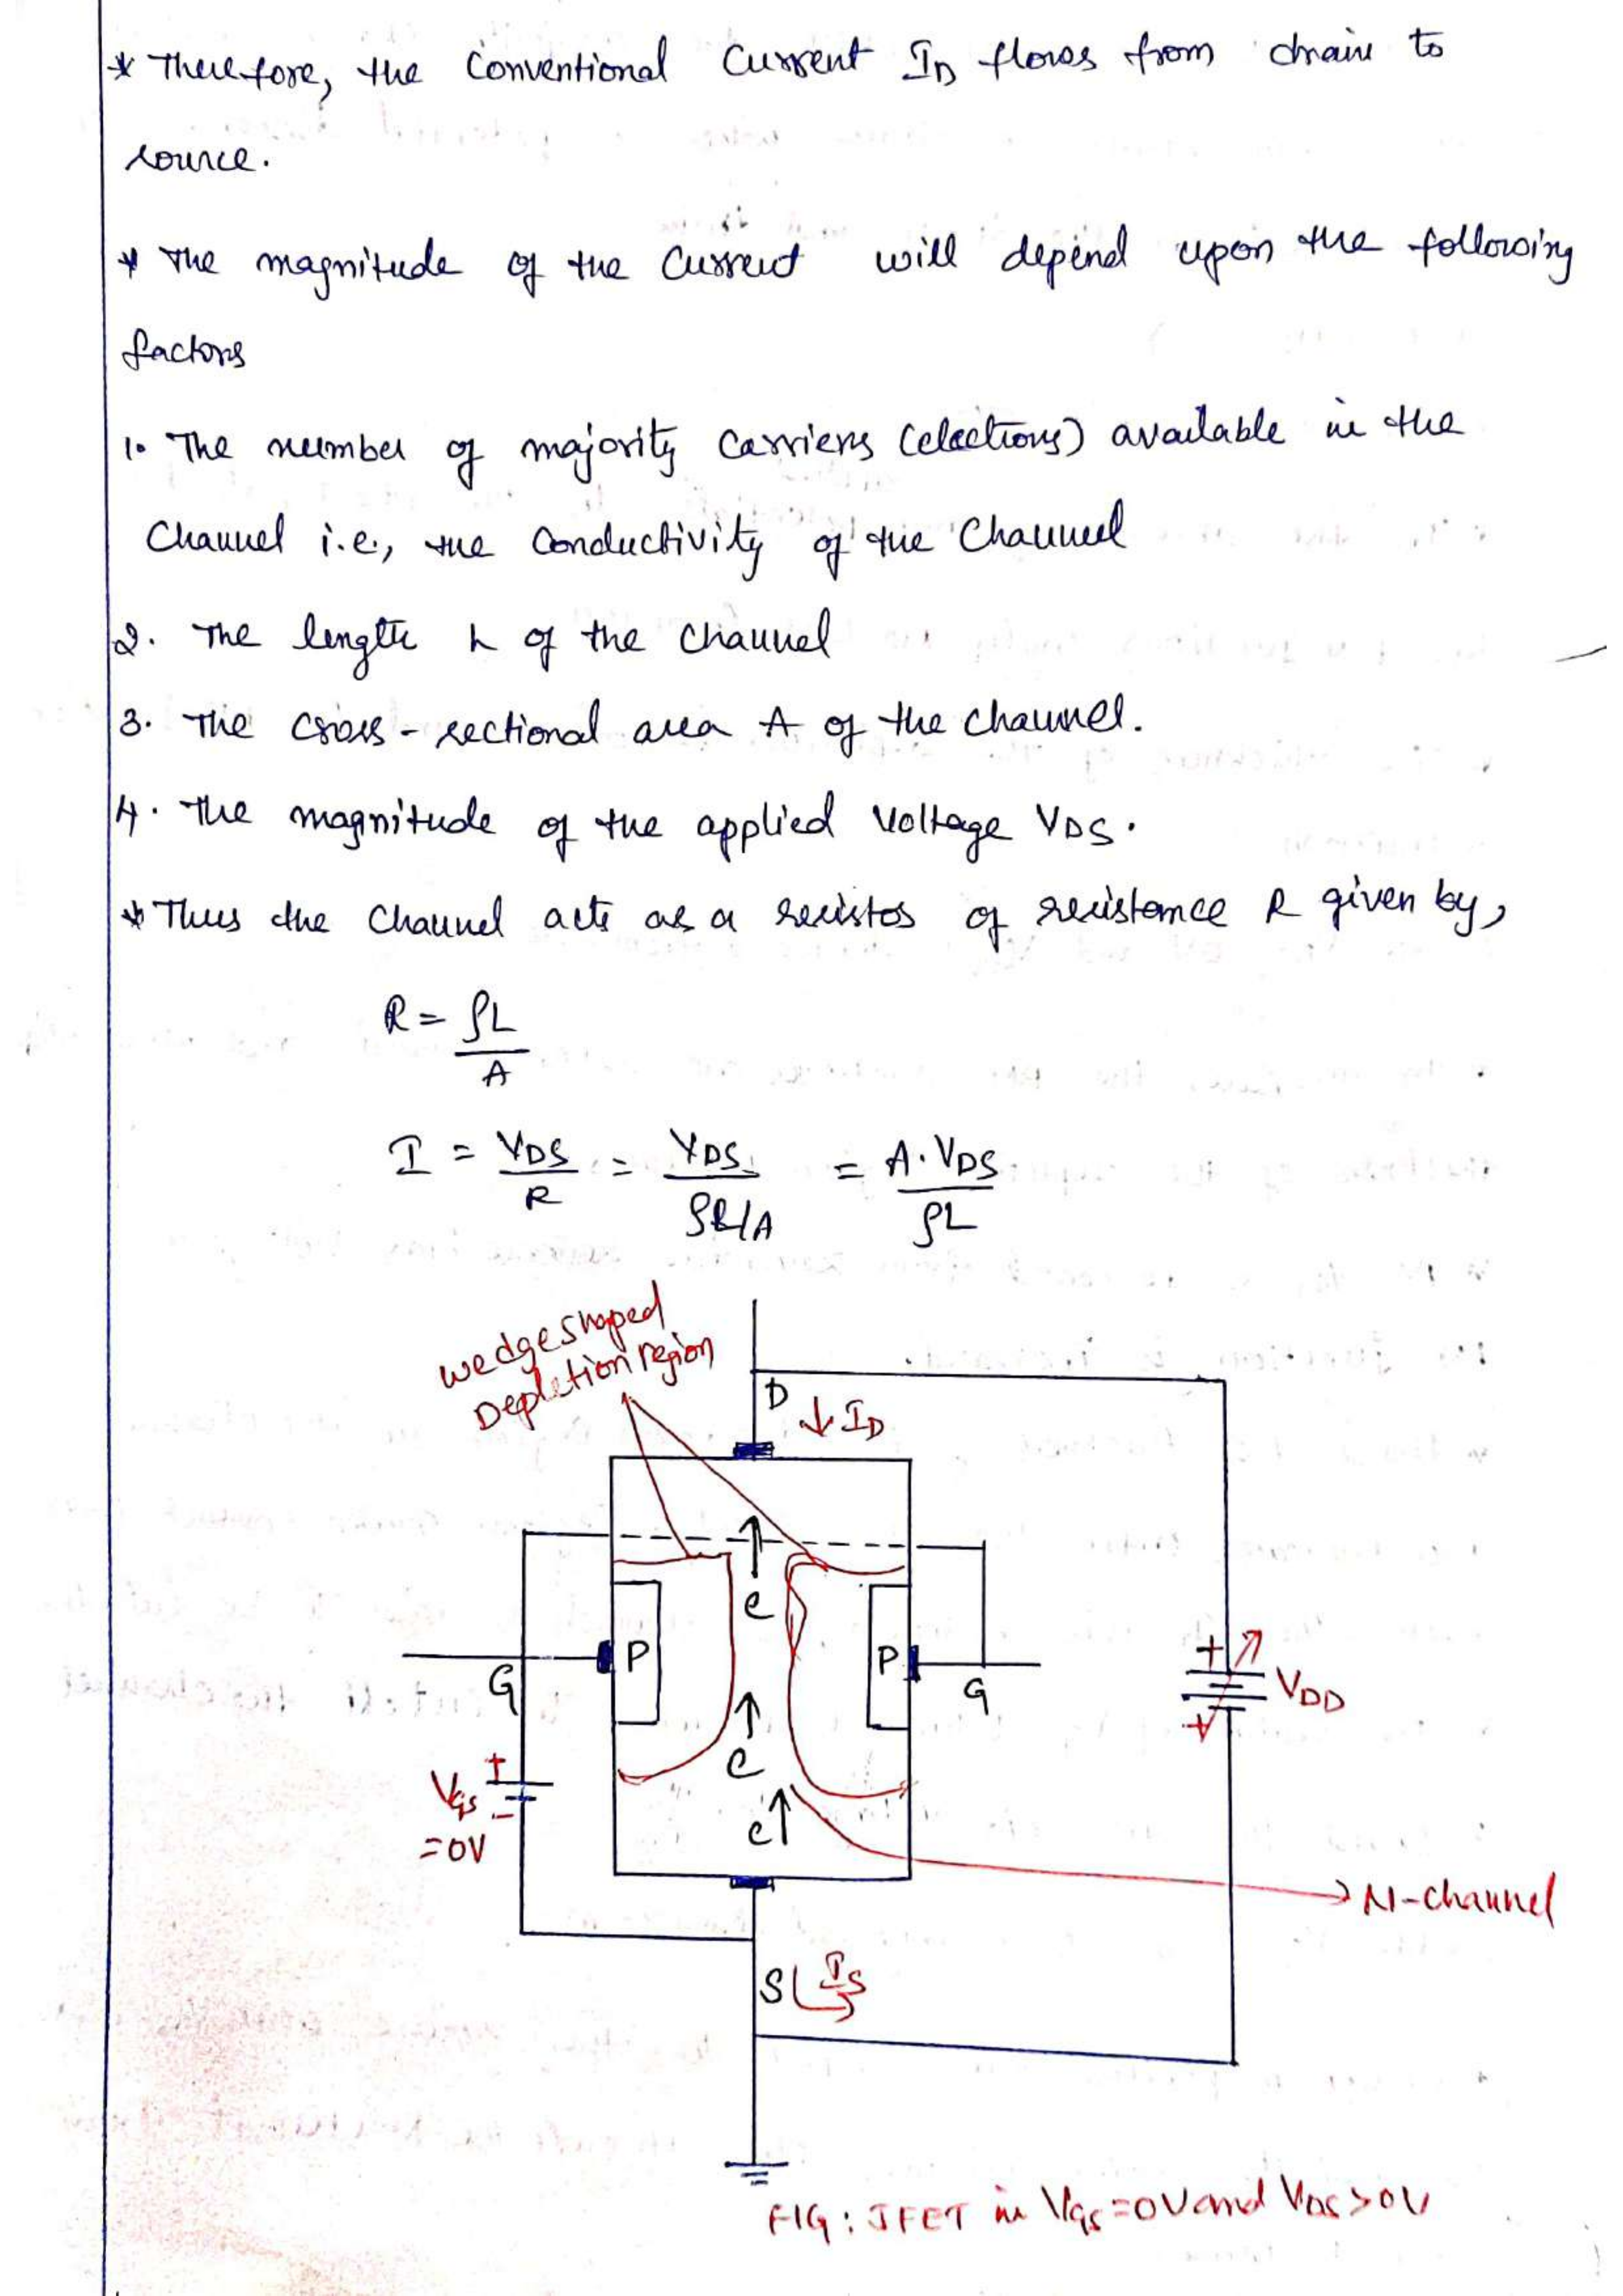 * Therefore, the Conventional Current ID flows from drain to
source.
* The magnitude of the Current will depend upon the following
factors
1. The number of majority carriers (electrons) available in the
Channel i.e., the Conductivity of the Channel
2. The length L of the channel
3. The cross-sectional area A of the channel.
4. The magnitude of the applied Voltage VDS.
* Thus the Channel acts as a resistor of resistance R given by,
R = ρL
A
I = VDS / R = VDS / ρL/A = A.VDS / ρL
wedge shaped
Depletion region
D ↓ ID
e
P P
G G
+ VDD
e
VGS + -
=0V
e
→ N-channel
S IS
FIG: JFET in VGS=0V and VDS>0V